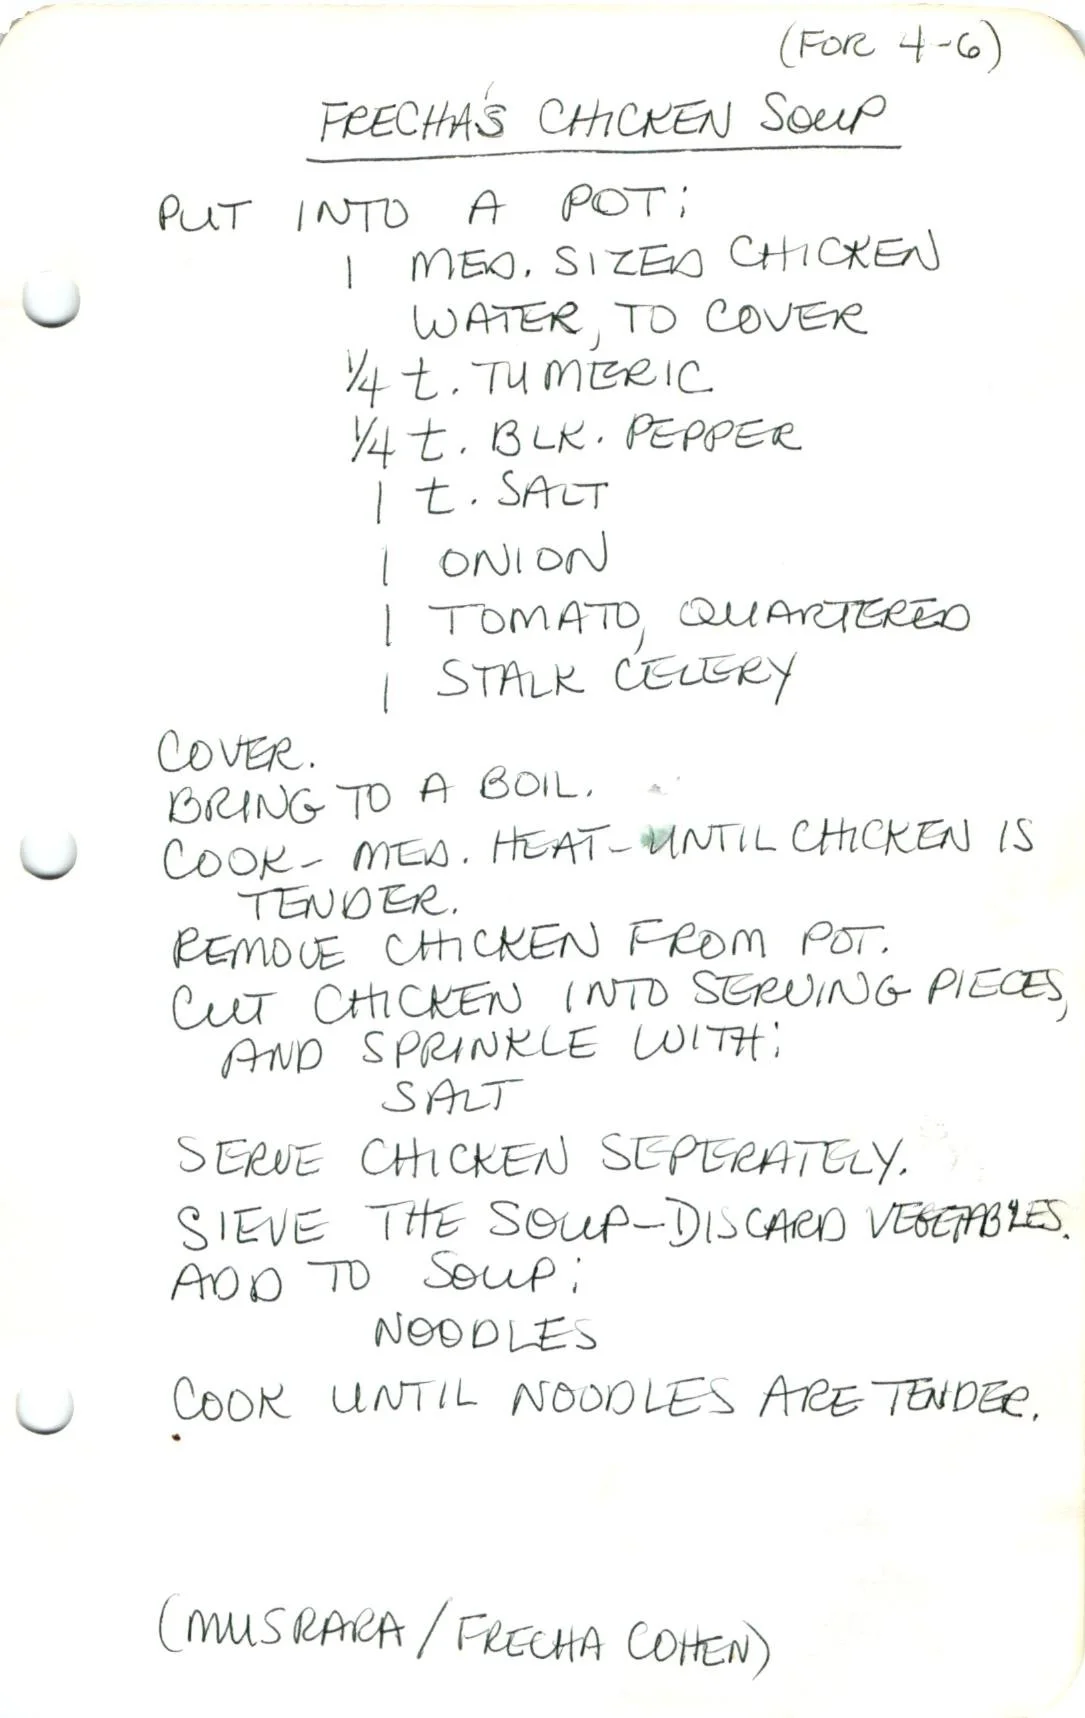 (FOR 4-6)
FRECHA'S CHICKEN SOUP
PUT INTO A POT:
1 MED. SIZED CHICKEN
WATER, TO COVER
1/4 t. TUMERIC
1/4 t. BLK. PEPPER
1 t. SALT
1 ONION
1 TOMATO, QUARTERED
1 STALK CELERY
COVER.
BRING TO A BOIL.
COOK - MED. HEAT - UNTIL CHICKEN IS
TENDER.
REMOVE CHICKEN FROM POT.
CUT CHICKEN INTO SERVING PIECES,
AND SPRINKLE WITH:
SALT
SERVE CHICKEN SEPERATELY.
SIEVE THE SOUP - DISCARD VEGETABLES.
ADD TO SOUP:
NOODLES
COOK UNTIL NOODLES ARE TENDER.
(MUSRARA / FRECHA COHEN)